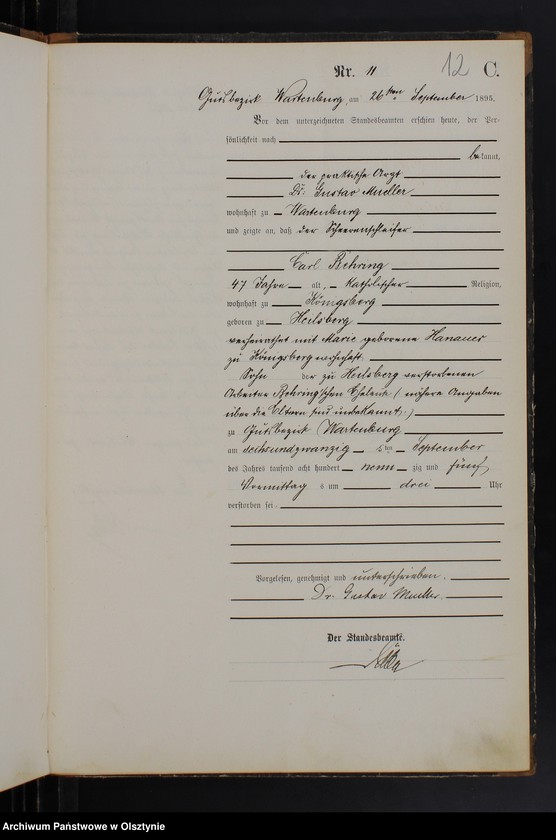 Nr. 11
12
C.
Gutsbezirk Wartenburg, am 26ten September 1895.
Vor dem unterzeichneten Standesbeamten erschien heute, der Per-
sönlichkeit nach
bekannt,
der praktische Arzt
Dr. Gustav Mueller
wohnhaft zu Wartenburg
und zeigte an, daß der Scheerenschleifer
Carl Behring
47 Jahre alt, katholischer Religion,
wohnhaft zu Königsberg
geboren zu Heilsberg
verheirathet mit Marie geborene Hanauer
zu Königsberg wohnhaft.
Sohn der zu Heilsberg verstorbenen
Arbeiter Behring'schen Eheleute (nähere Angaben
über die Eltern sind unbekannt.)
zu Gutsbezirk Wartenburg
am sechsundzwanzig sten September
des Jahres tausend acht hundert neunzig und fünf
Vormittags um drei Uhr
verstorben sei.
Vorgelesen, genehmigt und unterschrieben.
Dr. Gustav Mueller.
Der Standesbeamte.
Archiwum Państwowe w Olsztynie